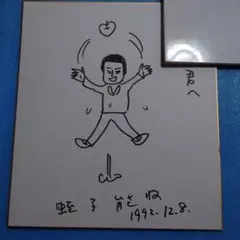 殿へ
蛭子能収
1992.12.8.